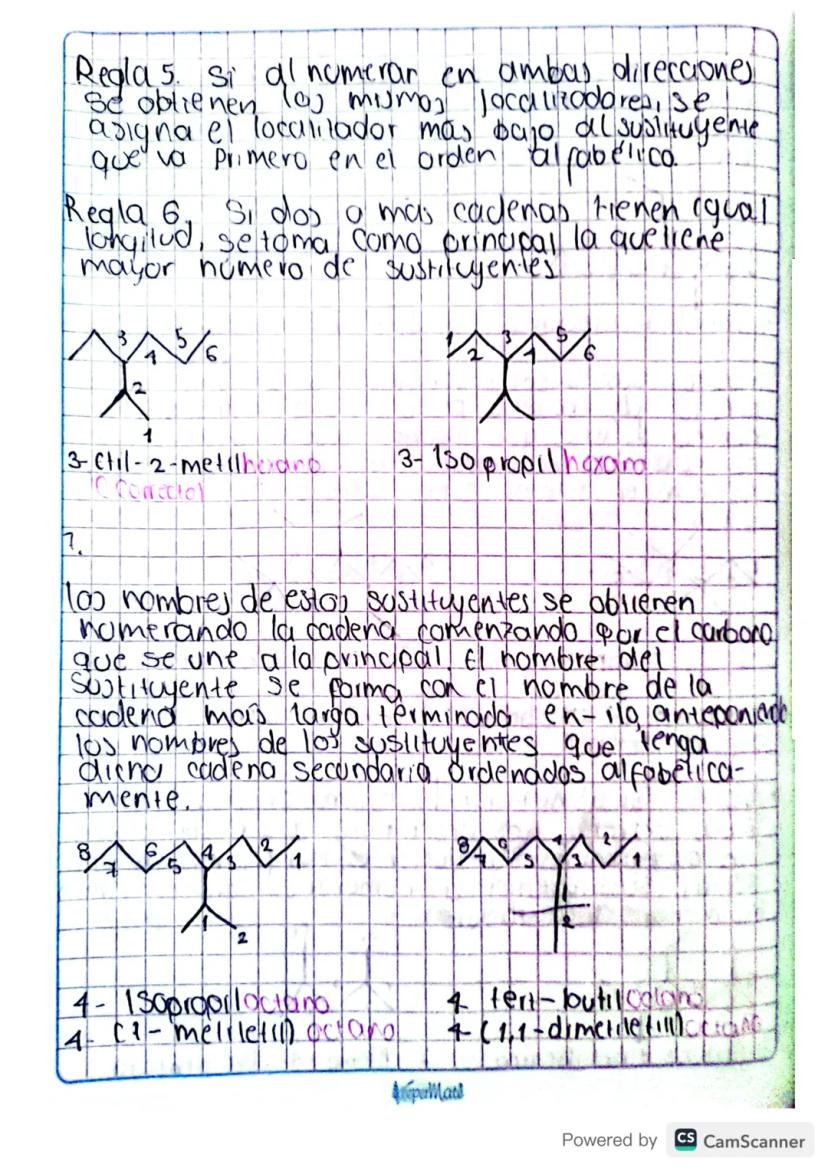 Regla 5. Si al numerar en ambas direcciones
se obtienen los mismos localizadores, se
asigna el localizador más bajo al sustituyente
que va primero en el orden alfabético.
Regla 6. Si dos o más cadenas tienen igual
longitud, se toma como principal la que tiene
mayor número de sustituyentes
3 5
4 6
2
1
1 3 5
2 4 6
3-etil-2-metilhexano
(correcto)
3-Isopropilhexano
7.
los nombres de estos sustituyentes se obtienen
numerando la cadena comenzando por el carbono
que se une a la principal. El nombre del
sustituyente se forma con el nombre de la
cadena más larga terminada en-ilo, anteponiendo
los nombres de los sustituyentes que tenga
dicha cadena secundaria ordenados alfabética-
mente.
8 6 4 2
7 5 3 1
1
2
8 6 4 2
7 5 3 1
1
2
4-Isopropiloctano
4-(1-metiletil)octano
4 tert-butiloctano
4-(1,1-dimetiletil)octano
Powered by CS CamScanner